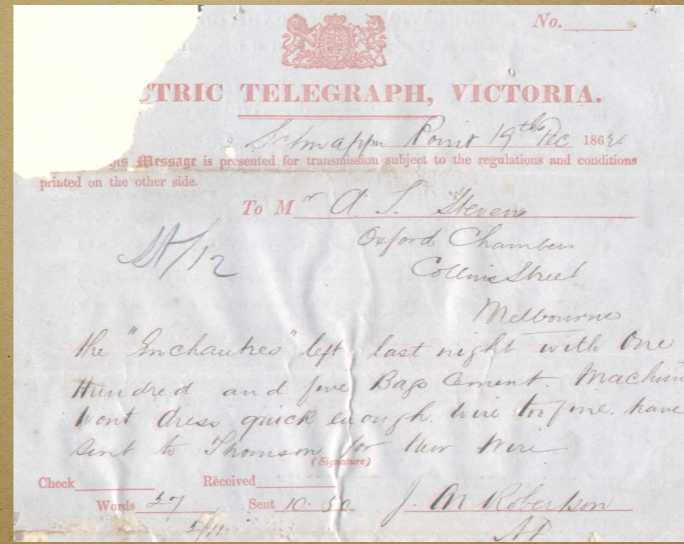 No.
CTRIC TELEGRAPH, VICTORIA.
Schnapper Point 19th Dc 186
his Message is presented for transmission subject to the regulations and conditions
printed on the other side.
To Mr A S. Steven
Oxford Chambers
Collins Street
Melbourne
The "Enchantres" left last night with One
Hundred and five Bags Cement. Machine
Wont dress quick enough. wire too fine. have
sent to Thomson for new Wire
(Signature)
Check Received
Words 27 Sent 10.50 J. M Robertson